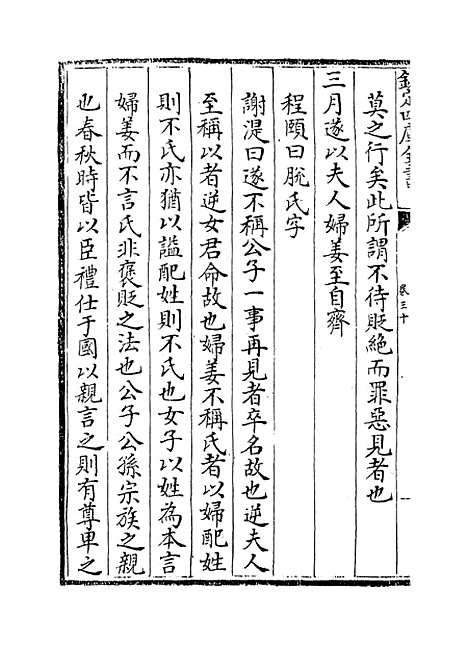 欽定四庫全書
卷三十
莫之行矣此所謂不待貶絶而罪惡見者也
三月遂以夫人婦姜至自齊
程頤曰脫氏字
謝湜曰遂不稱公子一事再見者卒名故也逆夫人
至稱以者逆女君命故也婦姜不稱氏者以婦配姓
則不氏亦猶以謚配姓則不氏也女子以姓為本言
婦姜而不言氏非襃貶之法也公子公孫宗族之親
也春秋時皆以臣禮仕于國以親言之則有尊卑之